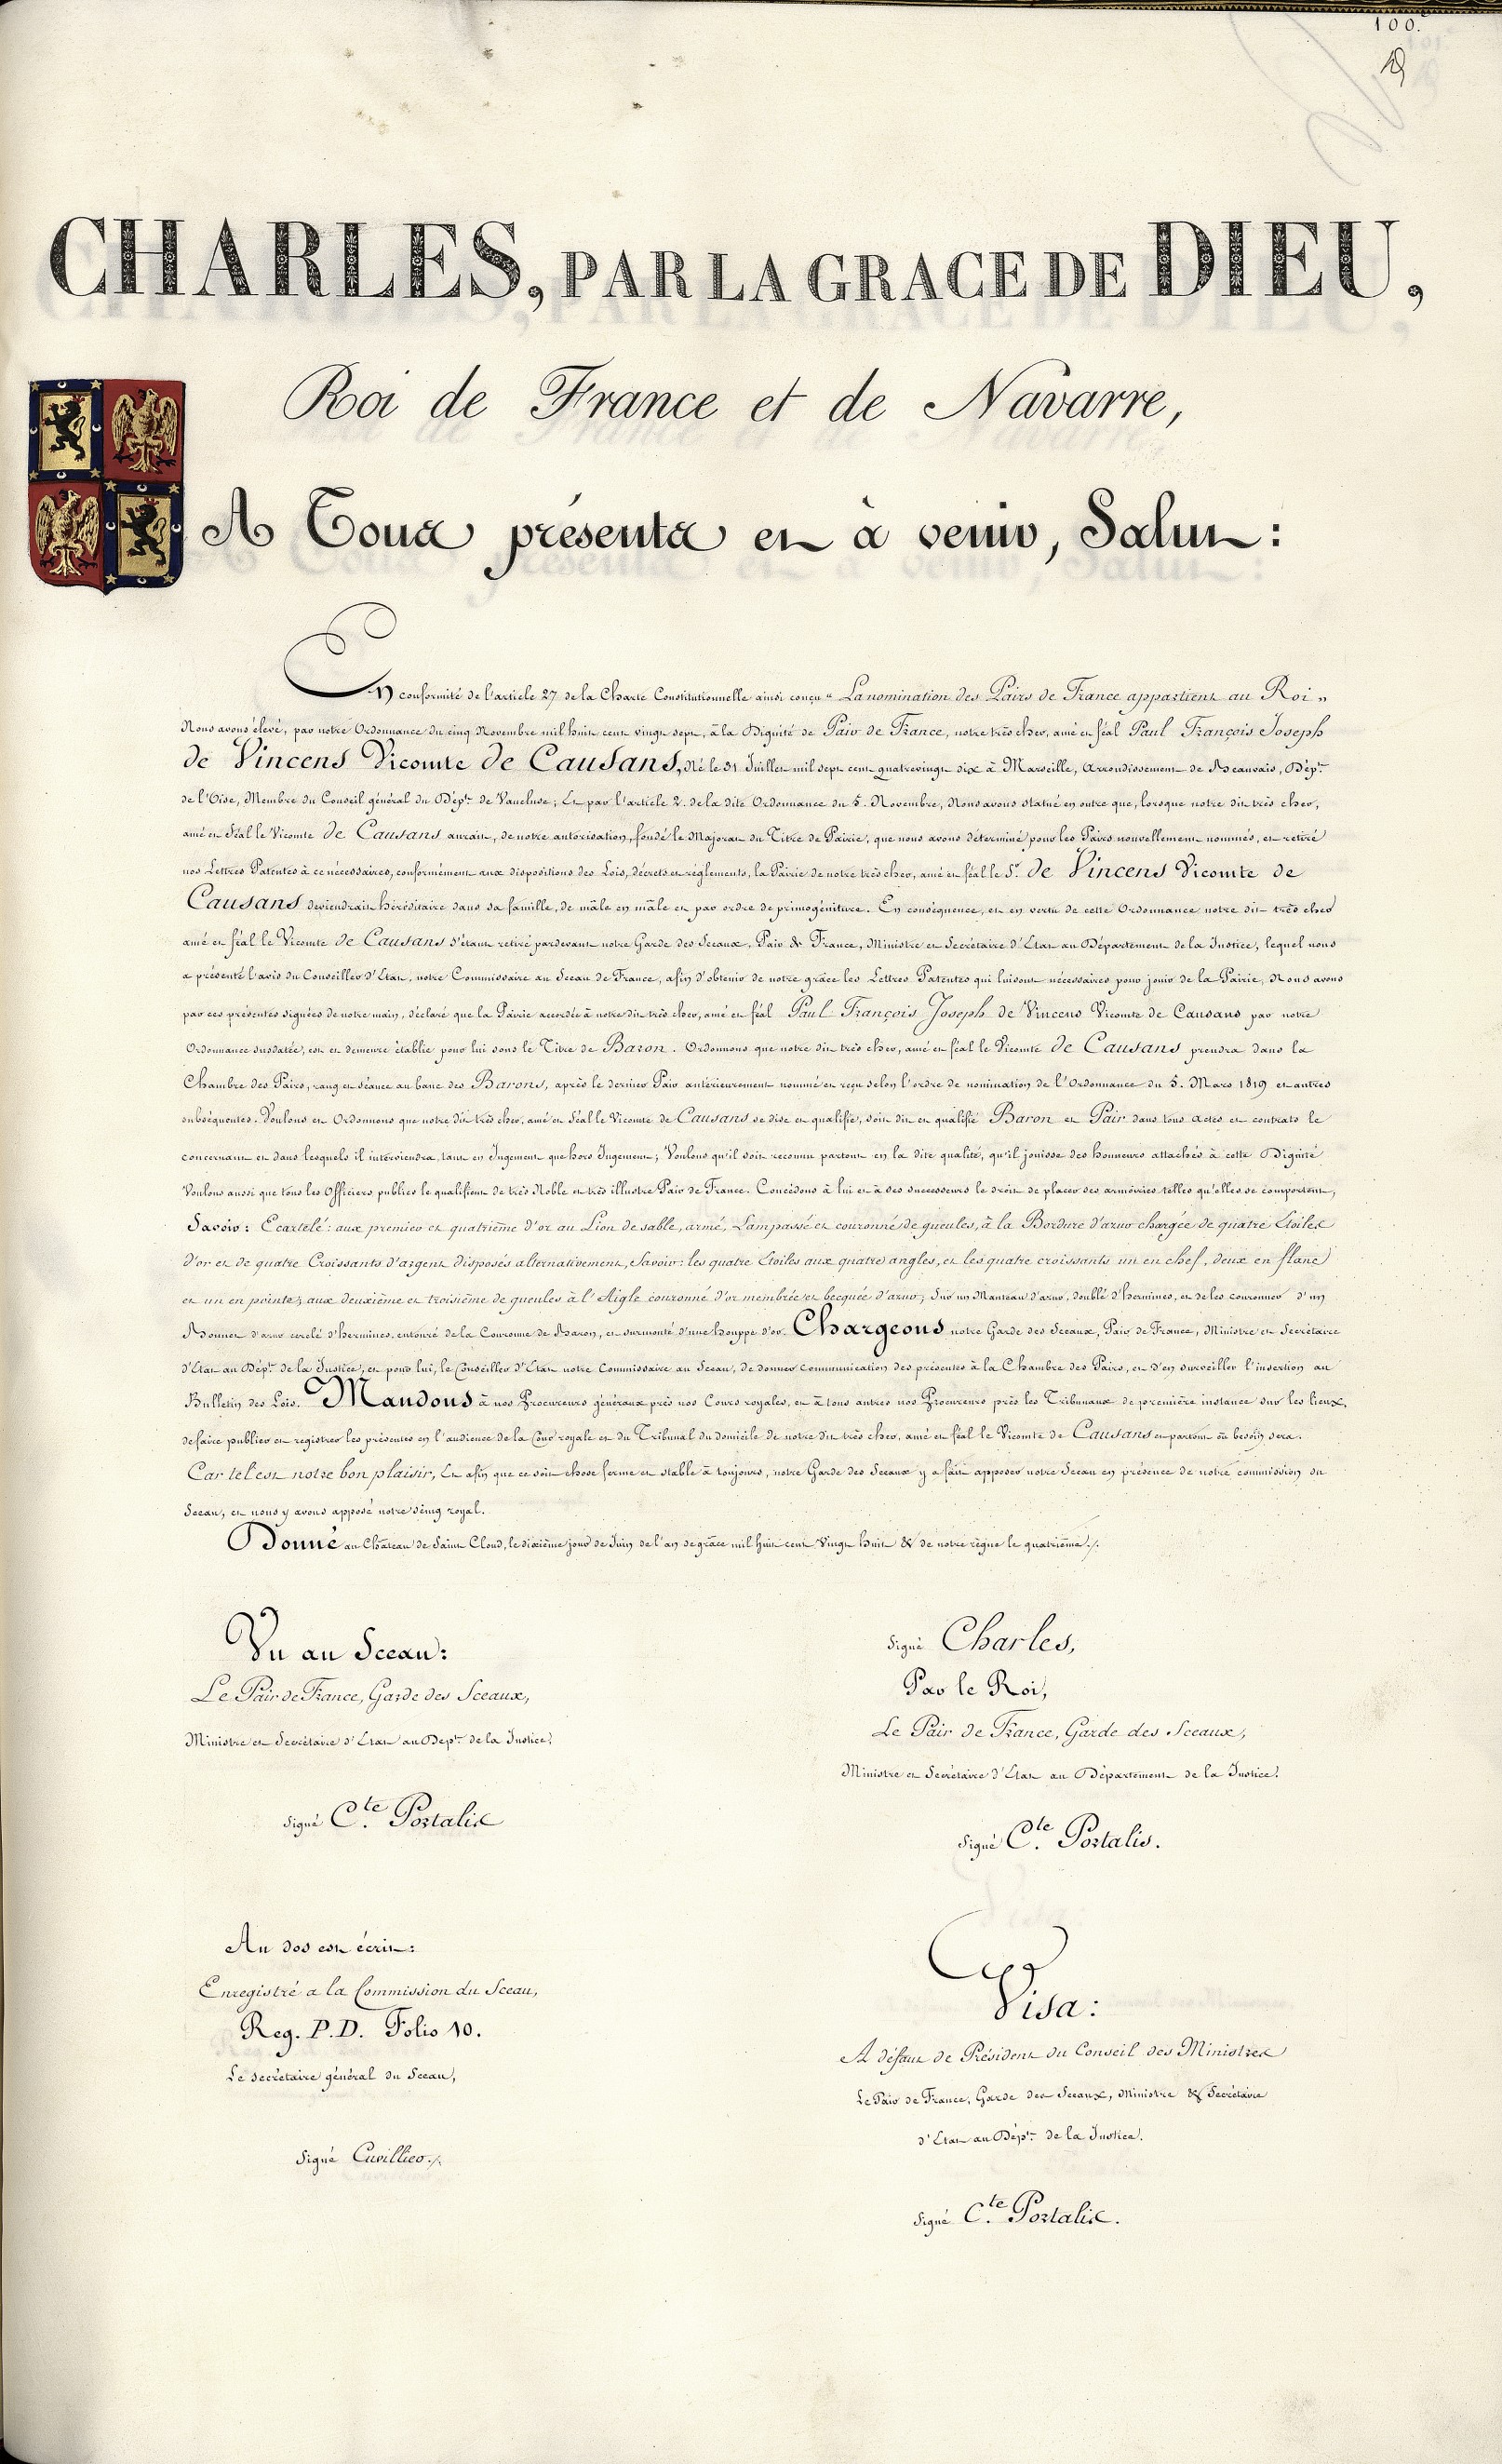 100.
CHARLES, PAR LA GRACE DE DIEU,
Roi de France et de Navarre,
A Tous présents et à venir, Salut :
En conformité de l'article 27 de la Charte Constitutionnelle ainsi conçu « La nomination des Pairs de France appartient au Roi »
Nous avons élevé, par notre Ordonnance du cinq Novembre mil huit cent vingt sept, à la Dignité de Pair de France, notre très cher, amé et féal Paul François Joseph
de Vincens Vicomte de Causans, né le 31 Juillet mil sept cent quatrevingt dix à Marseille, Arrondissement de Beauvais, Dépt.
de l'Oise, Membre du Conseil général du Dépt. de Vaucluse ; Et par l'article 2. de la dite Ordonnance du 5. Novembre, Nous avons statué en outre que, lorsque notre dit très cher,
amé et féal le Vicomte de Causans aurait, de notre autorisation, fondé le Majorat du Titre de Pairie, que nous avons déterminé pour les Pairs nouvellement nommés, et retiré
nos Lettres Patentes à ce nécessaires, conformément aux dispositions des Lois, décrets et réglements, la Pairie de notre très cher, amé et féal le Sr. de Vincens Vicomte de
Causans deviendrait héréditaire dans sa famille, de mâle en mâle et par ordre de primogéniture. En conséquence, et en vertu de cette Ordonnance notre dit très cher
amé et féal le Vicomte de Causans s'étant retiré pardevant notre Garde des Sceaux, Pair de France, Ministre et Secrétaire d'Etat au Département de la Justice, lequel nous
a présenté l'avis du Conseiller d'Etat, notre Commissaire au Sceau de France, afin d'obtenir de notre grâce les Lettres Patentes qui lui sont nécessaires pour jouir de la Pairie, Nous avons
par ces présentes signées de notre main, déclaré que la Pairie accordée à notre dit très cher, amé et féal Paul François Joseph de Vincens Vicomte de Causans par notre
Ordonnance susdatée, est et demeure établie pour lui sous le Titre de Baron. Ordonnons que notre dit très cher, amé et féal le Vicomte de Causans prendra dans la
Chambre des Pairs, rang et séance au banc des Barons, après le dernier Pair antérieurement nommé et reçu selon l'ordre de nomination de l'Ordonnance du 5. Mars 1819 et autres
subséquentes. Voulons et Ordonnons que notre dit très cher, amé et féal le Vicomte de Causans se dise et qualifie, soit dit et qualifié Baron et Pair dans tous actes et contrats le
concernant et dans lesquels il interviendra, tant en Jugement que hors Jugement ; Voulons qu'il soit reconnu partout en la dite qualité, qu'il jouisse des honneurs attachés à cette Dignité
Voulons aussi que tous les Officiers publics le qualifient de très Noble et très illustre Pair de France. Concédons à lui et à ses successeurs le droit de placer ses armoiries telles qu'elles se comportent,
Savoir : Ecartelé : aux premier et quatrième d'or au Lion de sable, armé, Lampassé et couronné de gueules, à la Bordure d'azur chargée de quatre Etoiles
d'or et de quatre Croissants d'argent disposés alternativement, Savoir : les quatre Etoiles aux quatre angles, et les quatre croissants un en chef, deux en flanc
et un en pointe ; aux deuxième et troisième de gueules à l'Aigle couronné d'or membrée et becquée d'azur ; Sur un Manteau d'azur, doublé d'hermines, et de les couronner d'un
Bonnet d'azur cerclé d'hermines, entouré de la Couronne de Baron, et surmonté d'une houppe d'or. Chargeons notre Garde des Sceaux, Pair de France, Ministre et Secrétaire
d'Etat au Dépt. de la Justice, et pour lui, le Conseiller d'Etat notre Commissaire au Sceau, de donner communication des présentes à la Chambre des Pairs, et d'en surveiller l'insertion au
Bulletin des Lois. Mandons à nos Procureurs généraux près nos Cours royales, et à tous autres nos Procureurs près les Tribunaux de première instance sur les lieux,
de faire publier et registrer les présentes en l'audience de la Cour royale et du Tribunal du domicile de notre dit très cher, amé et féal le Vicomte de Causans et partout où besoin sera.
Car tel est notre bon plaisir, Et afin que ce soit chose ferme et stable à toujours, notre Garde des Sceaux y a fait apposer notre Sceau en présence de notre commission du
Sceau, et nous y avons apposé notre seing royal.
Donné au Château de Saint Cloud, le dixième jour de Juin de l'an de grâce mil huit cent Vingt huit & de notre règne le quatrième ./.
Vu au Sceau :
Le Pair de France, Garde des Sceaux,
Ministre et Secrétaire d'Etat au Dept. de la Justice,
signé Cte. Portalis
signé Charles,
Par le Roi,
Le Pair de France, Garde des Sceaux,
Ministre et Secrétaire d'Etat au Département de la Justice.
signé Cte. Portalis.
Au dos est écrit :
Enregistré a la Commission du Sceau,
Reg. P.D. Folio 10.
Le secrétaire général du Sceau,
signé Cuvillier ./.
Visa :
A défaut de Président du Conseil des Ministres
Le Pair de France, Garde des Sceaux, Ministre & Secrétaire
d'Etat au Dépt. de la Justice.
signé Cte. Portalis.